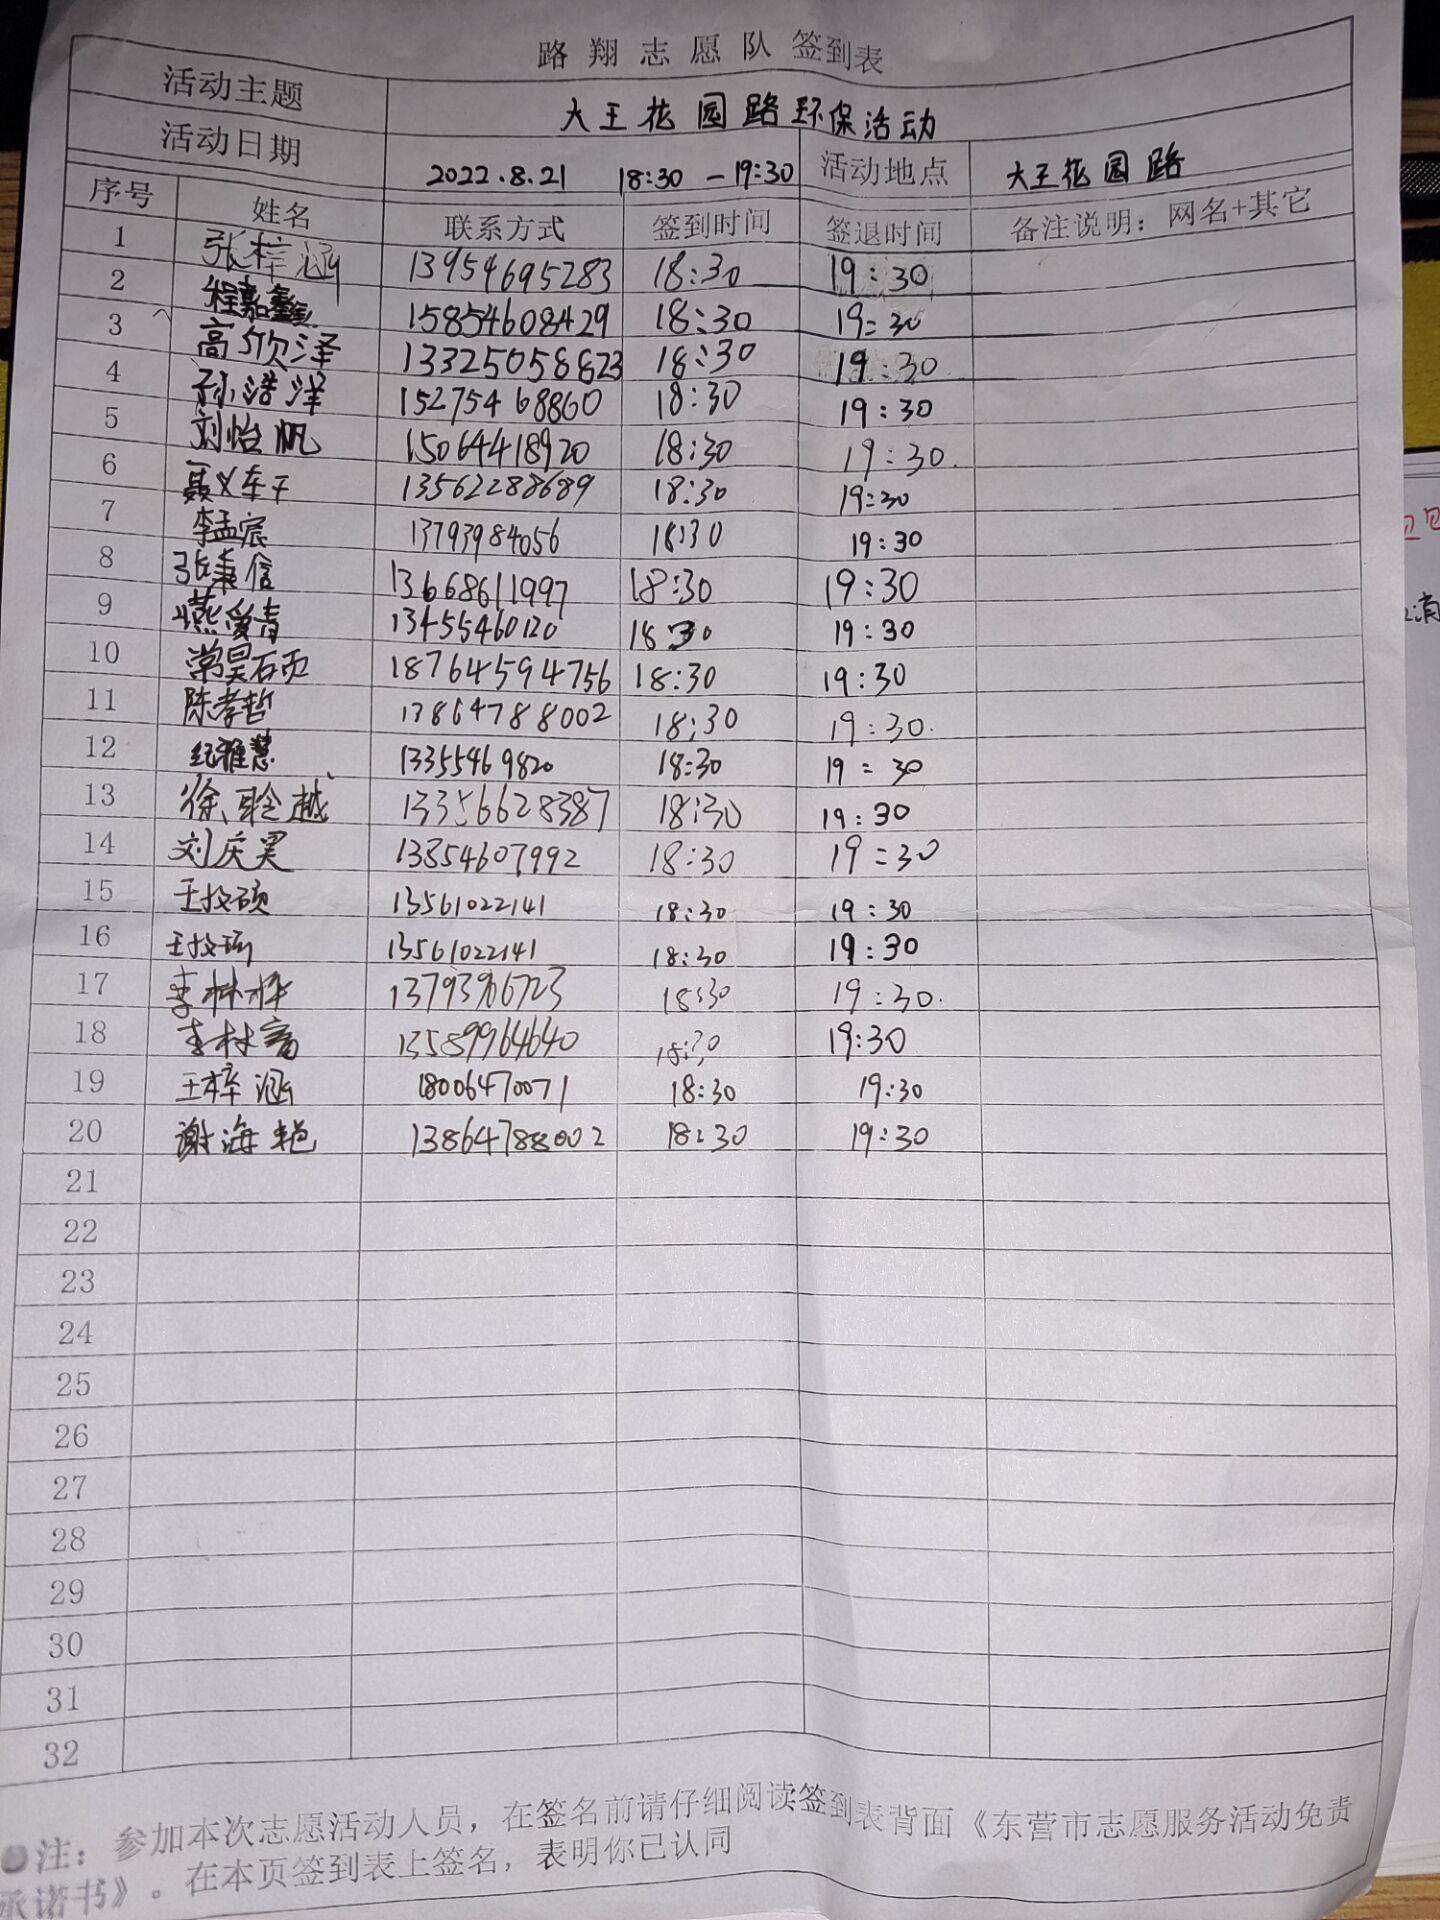 路翔志愿队签到表
活动主题 大王花园路环保活动
活动日期 2022.8.21 18:30-19:30 活动地点 大王花园路
序号 姓名 联系方式 签到时间 签退时间 备注说明：网名+其它
1 张梓涵 13954695283 18:30 19:30
2 程嘉鑫 15854608429 18:30 19:30
3 高欣泽 13325058823 18:30 19:30
4 孙浩洋 15275468860 18:30 19:30
5 刘怡帆 15064418920 18:30 19:30
6 聂义车干 13562288689 18:30 19:30
7 李孟宸 13793984056 18:30 19:30
8 张秉信 13668611997 18:30 19:30
9 燕爱青 13455460120 18:30 19:30
10 常昊石页 18764594756 18:30 19:30
11 陈孝哲 13864788002 18:30 19:30
12 纪雅慧 13355469820 18:30 19:30
13 徐聆越 13356628387 18:30 19:30
14 刘庆昊 13854607992 18:30 19:30
15 13561022141 18:30 19:30
16 13561022141 18:30 19:30
17 李林桦 18:30 19:30
18 李林 13589964640 18:30 19:30
19 王梓涵 18006470071 18:30 19:30
20 谢海艳 13864788002 18:30 19:30
21
22
23
24
25
26
27
28
29
30
31
32
注：参加本次志愿活动人员，在签名前请仔细阅读签到表背面《东营市志愿服务活动免责
承诺书》。在本页签到表上签名，表明你已认同
消